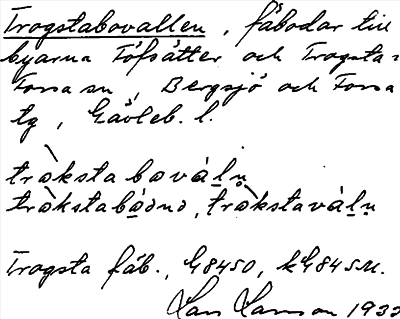 Trogstabovallen, fäbodar till
byarna Töfsätter och Trogsta:
Forsa sn, Bergsjö och Forsa
tg, Gävleb. l.
tròksta bωvál̥n̥
Trogsta fäb., G8450, kG84SM.
Lars Larsson 1933